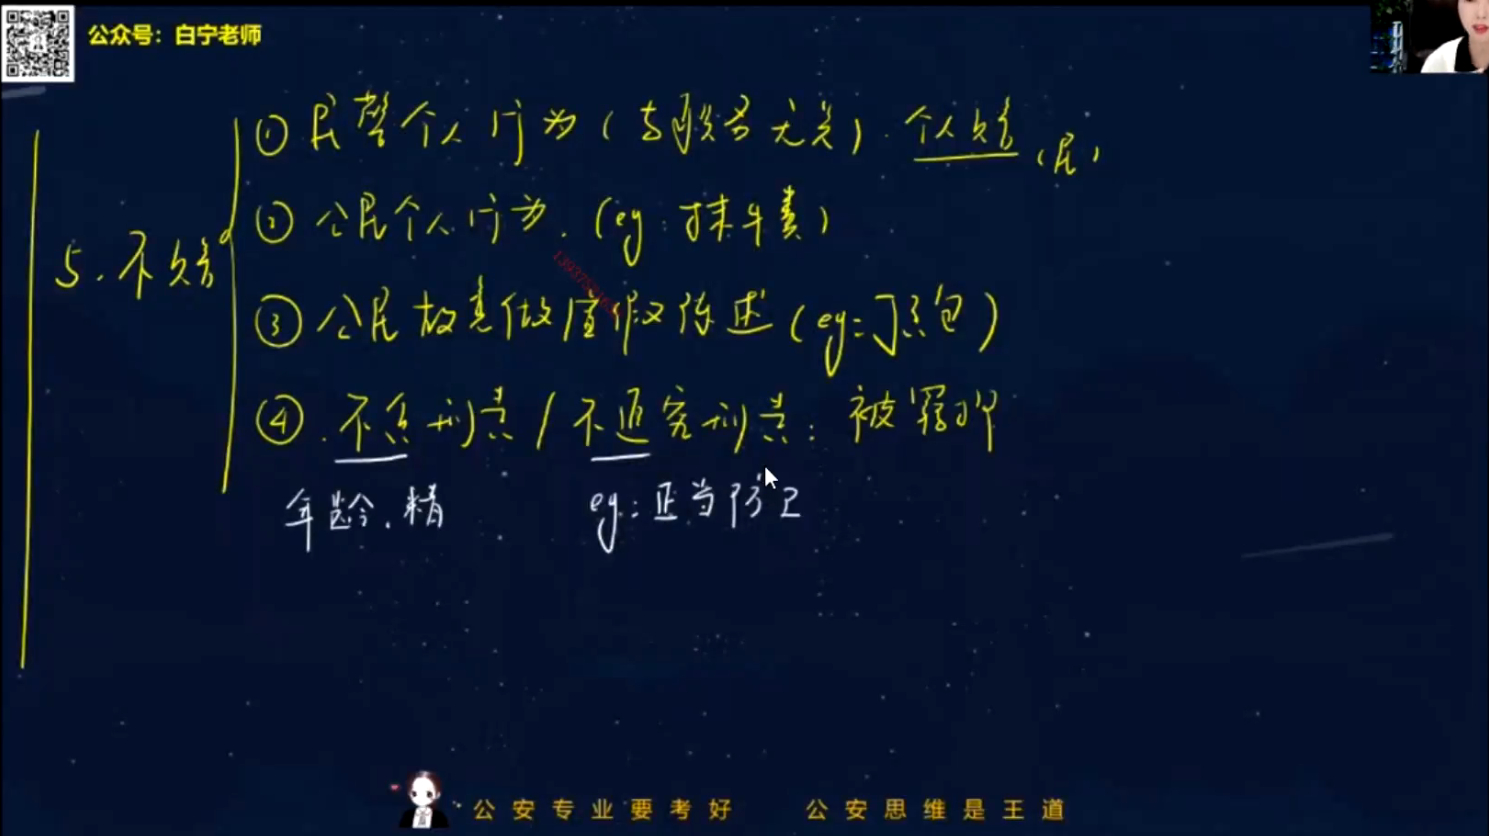 公众号：白宁老师
① 民警个人行为（与职务无关）. 个人赔（民）
② 公民个人行为.（eg：抹牛粪）
5. 不赔
③ 公民故意做虚假陈述（eg：顶包）
④ .不负刑责/不追究刑责：被羁押
年龄.精 eg：正当防卫
公安专业要考好 公安思维是王道